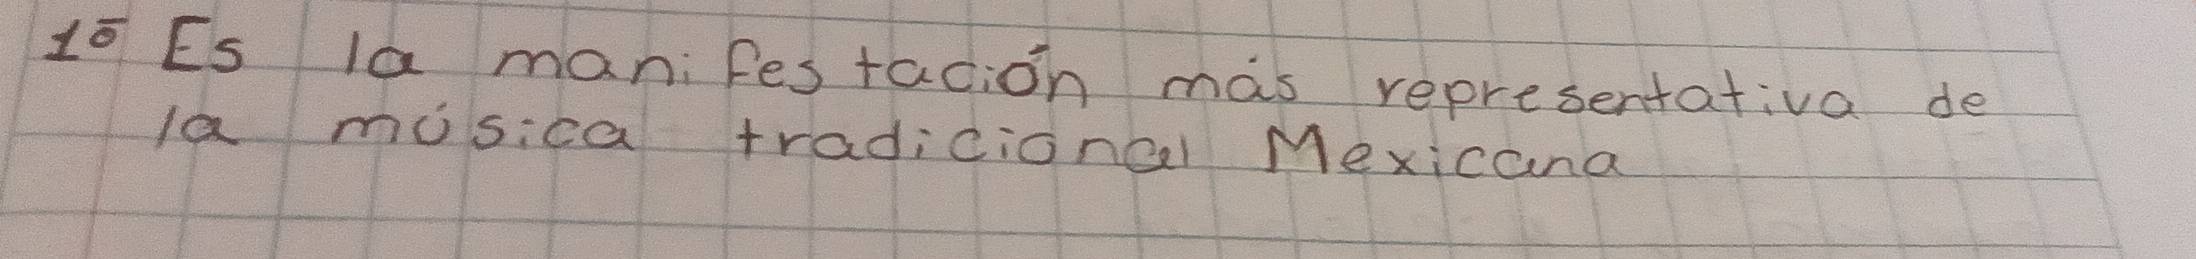 1º Es la manifestación más representativa de
la música tradicional Mexicana